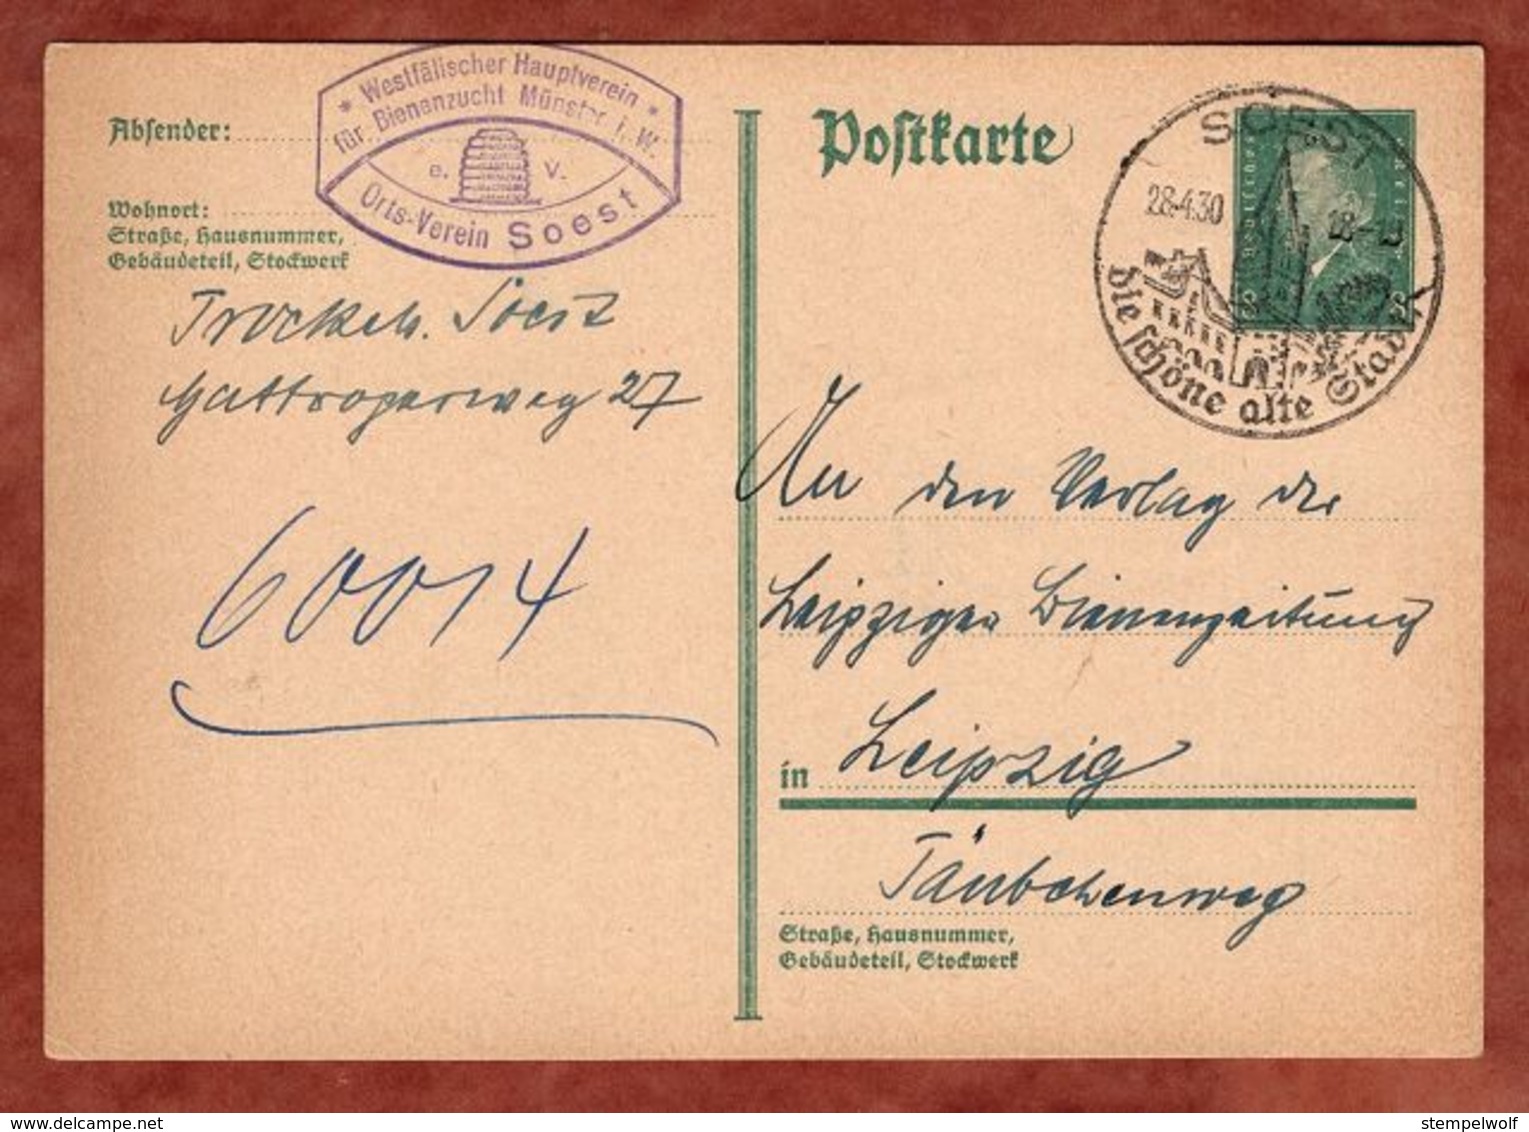 * Westfälischer Hauptverein *
für Bienenzucht Münster i. W.
e. V.
Orts-Verein Soest
Absender:
Wohnort:
Straße, Hausnummer,
Gebäudeteil, Stockwerk
Soest
27
60014
Postkarte
SOEST
28.4.30
18-
Die schöne alte Stadt
An den Verlag der
Leipziger Bienenzeitung
in Leipzig
Täubchenweg
Straße, Hausnummer,
Gebäudeteil, Stockwerk
delcampe.net
stempelwolf